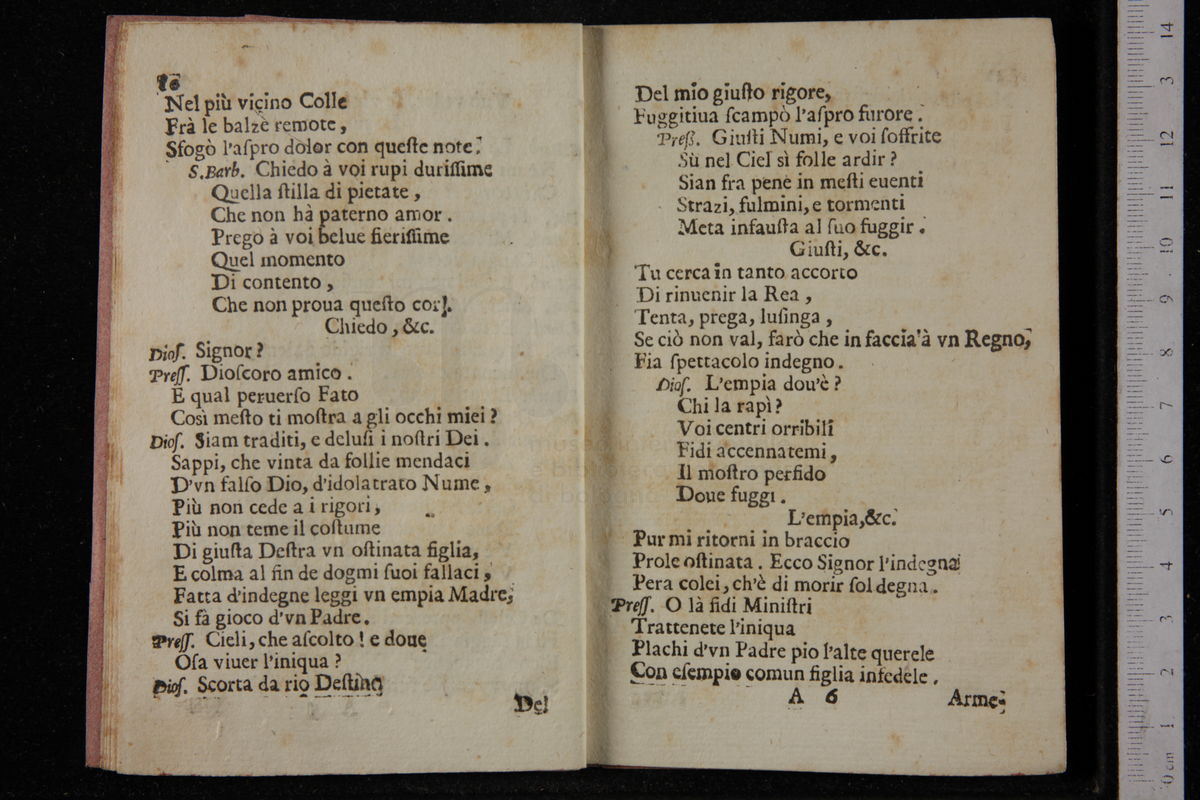 10
Nel più vicino Colle
Frà le balze remote,
Sfogò l'aſpro dolor con queſte note.
S.Barb. Chiedo à voi rupi duriſſime
Quella ſtilla di pietate,
Che non hà paterno amor.
Prego à voi belue fieriſſime
Quel momento
Di contento,
Che non proua queſto cor.
Chiedo, &c.
Dioſ. Signor?
Preſſ. Dioſcoro amico.
E qual peruerſo Fato
Così meſto ti moſtra a gli occhi miei?
Dioſ. Siam traditi, e deluſi i noſtri Dei.
Sappi, che vinta da follie mendaci
D'vn falſo Dio, d'idolatrato Nume,
Più non cede a i rigori,
Più non teme il coſtume
Di giuſta Deſtra vn oſtinata figlia,
E colma al fin de dogmi ſuoi fallaci,
Fatta d'indegne leggi vn empia Madre,
Si fà gioco d'vn Padre.
Preſſ. Cieli, che aſcolto! e doue
Oſa viuer l'iniqua?
Dioſ. Scorta da rio Deſtino
Del
Del mio giuſto rigore,
Fuggitiua ſcampò l'aſpro furore.
Preß. Giuſti Numi, e voi ſoffrite
Sù nel Ciel sì folle ardir?
Sian fra pene in meſti euenti
Strazi, fulmini, e tormenti
Meta infauſta al ſuo fuggir.
Giuſti, &c.
Tu cerca in tanto accorto
Di rinuenir la Rea,
Tenta, prega, luſinga,
Se ciò non val, farò che in faccia à vn Regno,
Fia ſpettacolo indegno.
Dioſ. L'empia dou'è?
Chi la rapì?
Voi centri orribili
Fidi accennatemi,
Il moſtro perfido
Doue fuggì.
L'empia, &c.
Pur mi ritorni in braccio
Prole oſtinata. Ecco Signor l'indegna
Pera colei, ch'è di morir ſol degna.
Preſſ. O là fidi Miniſtri
Trattenete l'iniqua
Plachi d'vn Padre pio l'alte querele
Con eſempio comun figlia infedele.
A 6 Arme-
0 cm 1 2 3 4 5 6 7 8 9 10 11 12 3 14